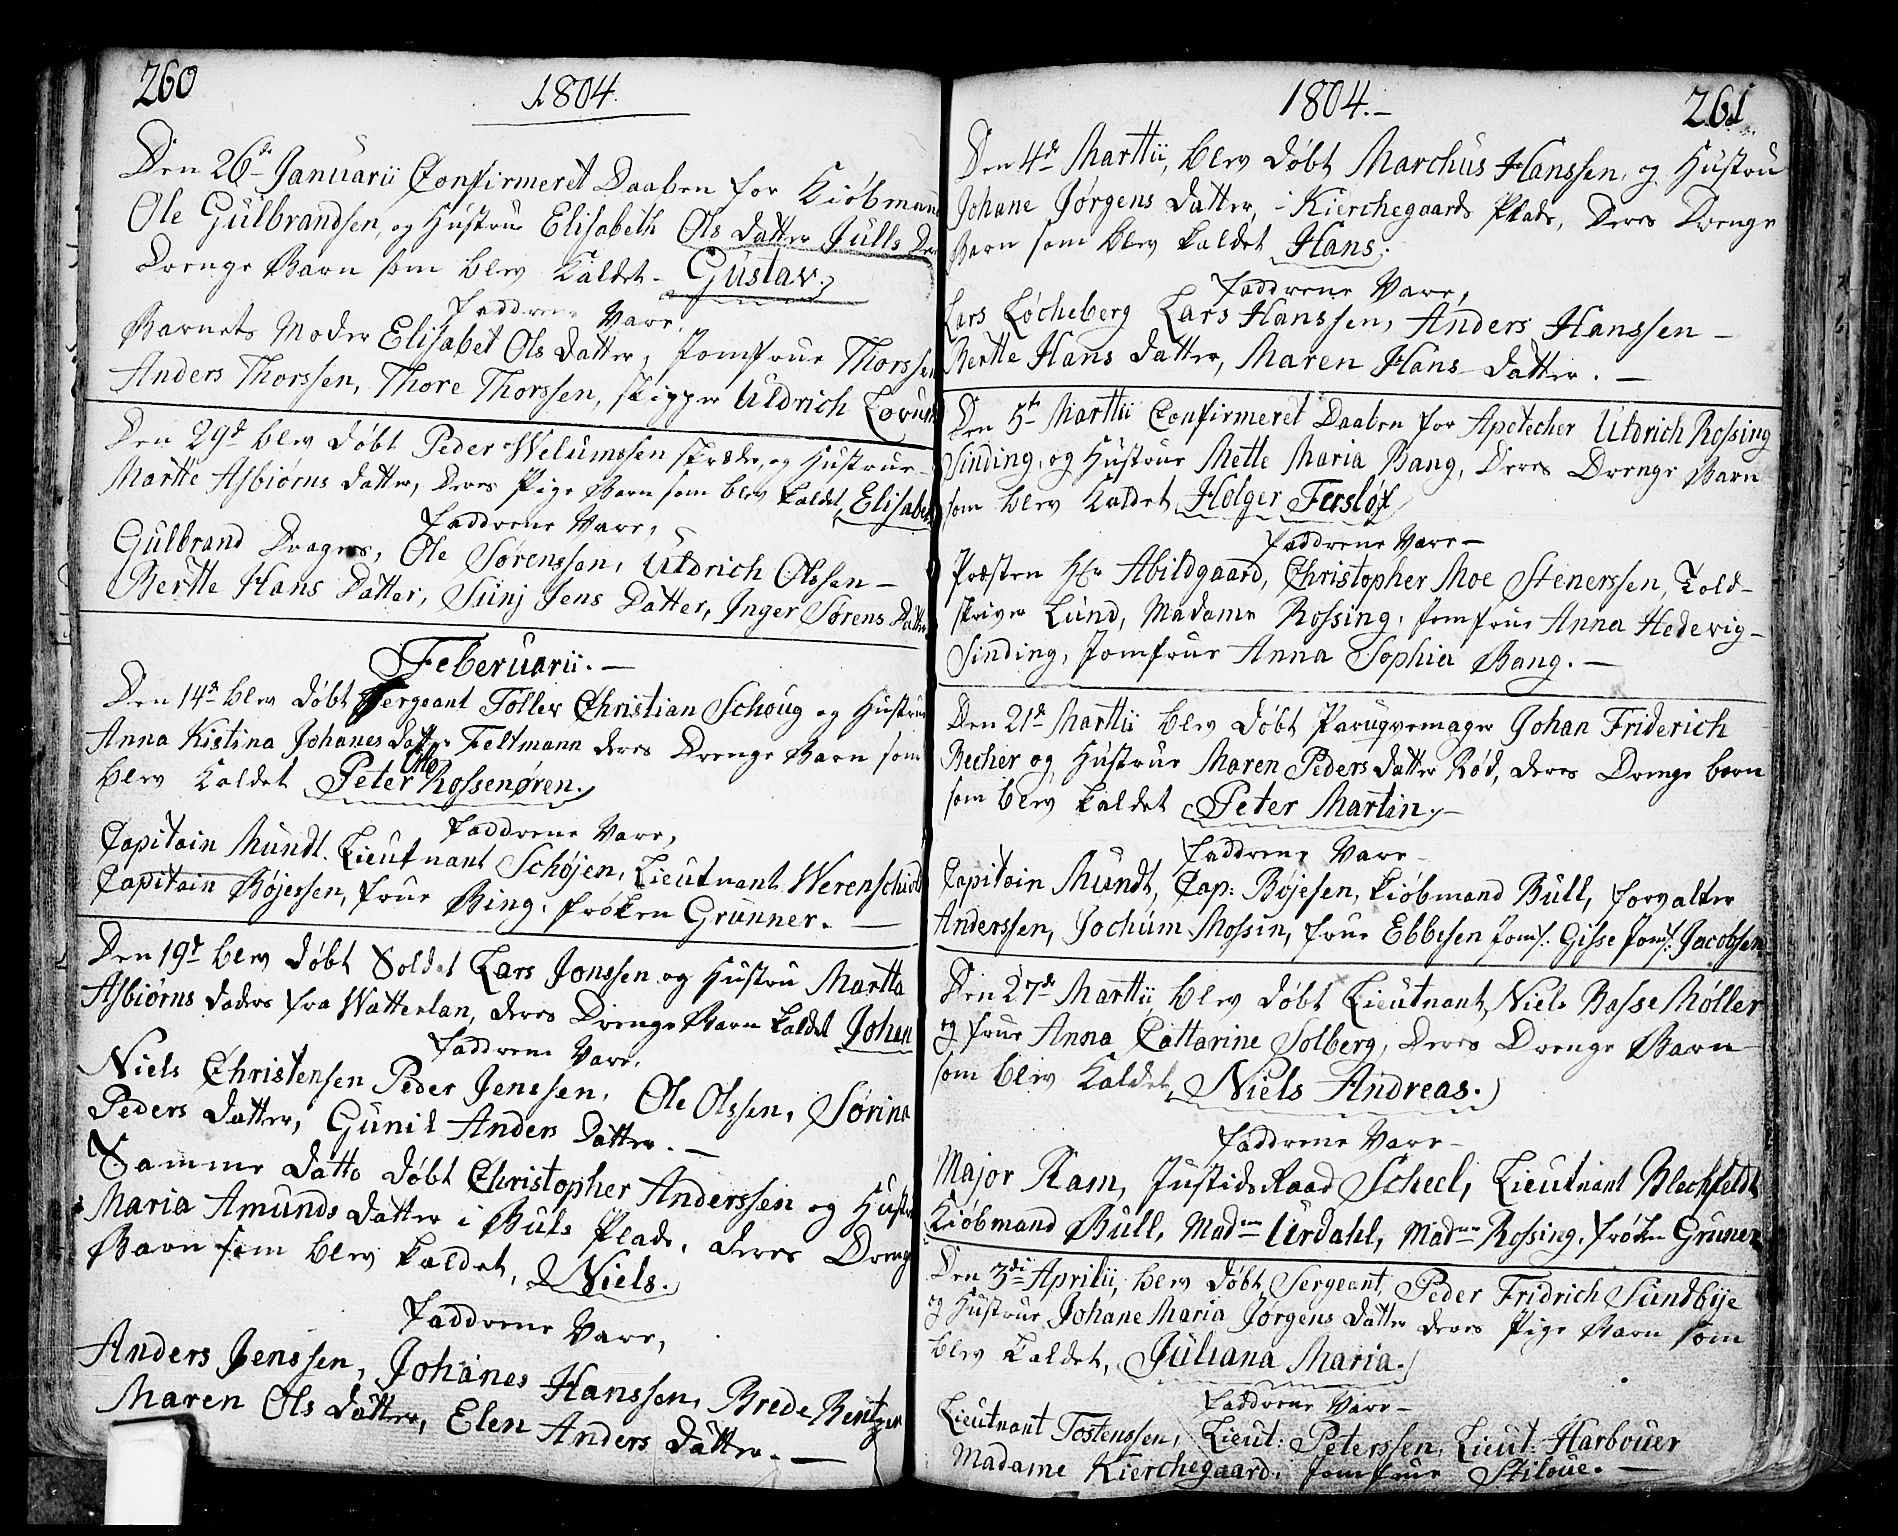 260
1804.
Den 26de Januarii Confirmeret Daaben for Kiöbmand
Ole Gulbrandsen, og Hustrue Elisabeth Ols Datter Julls
Drenge Barn som blev Kaldet Gustav.
Faddrene Vare,
Barnets Moder Elisabet Ols Datter, Jomfrue Thorssen
Anders Thorssen, Thore Thorssen, skipper Uldrich
Den 29de blev Døbt Peder Welumssen og Hustrue
Martte Asbiørns Datter, Deres Pige Barn som blev kaldet Elisabet
Faddrene Vare,
Gulbrand Ole Sørenssen, Uldrich Olssen
Bertte Hans Datter, Siinj Jens Datter, Inger Sørens Datter
Feberuarii.
Den 14de blev Døbt Sergeant Toller Christian Schoug og Hustrue
Anna Kistina Johanes Datter Feltmann deres Drenge Barn som
blev Kaldet Peter Otto Rossenøren.
Faddrene Vare,
Capitain Mundt. Lieutnant Schøjen, Lieutnant Werenschiold
Capitain Bøjessen, frue Bing, frøken Grunner.
Den 19de blev Døbt Soldat Lars Jonssen og Hustru Martta
Asbiørns Daders fra Watterlan, deres Drenge Barn kaldet Johan
Faddrene Vare,
Niels Christensen Peder Jenssen, Ole Olssen, Sørina
Peders Datter, Gunil Anders Datter.
Samme Datto Døbt Christopher Anderssen og Hustru
Maria Amunds Datter i Buls Plads, deres Drenge
Barn som blev kaldet, Niels.
Faddrene Vare,
Anders Jenssen, Johanes Hanssen, Brede Bentzen
Maren Ols Datter, Elen Anders Datter.
1804.
261
Den 4de Marttii, blev Døbt Marchus Hanssen, og Hustru
Johane Jørgens Datter, Kierchegaards Plads, Deres Drenge
Barn som blev kaldet Hans.
Faddrene Vare,
Lars Løcheberg Lars Hanssen, Anders Hanssen
Bertte Hans Datter, Maren Hans Datter.
Den 5te Marttii Confirmeret Daaben for Apotecher Uldrich Rossing
Sinding, og Hustrue Mette Maria Bang, Deres Drenge Barn
som blev Kaldet Holger Fersløf
Faddrene Vare
Præsten Hr Abildgaard, Christopher Moe Stenerssen, Told-
skriver Lund, Madame Rossing, Jomfrue Anna Hedevig
Sinding, Jomfrue Anna Sophia Bang.
Den 21de Marttii blev Døbt Paruqvemager Johan Friderich
Becher og Hustrue Maren Peders Datter Rød, deres Drenge barn
som blev kaldet Peter Martin.
Faddrene Vare
Capitain Mundt, Cap: Bøjesen, kiøbmand Bull, forvalter
Anderssen, Jochum Mossin, frue Ebbesen Jomf: Gisse Jomf: Jacobsen
Den 27de Marttii blev Døbt Lieutnant, Niels Basse Møller
og frue Anna Cattarine Solberg, Deres Drenge Barn
som blev Kaldet, Niels Andreas.
Faddrene Vare
Major Ram, Justids Raad Scheel, Lieutnant Blechfeldt
Kiøbmand Bull, Madme Urdahl, Madme Rossing, frøken Gruner
Den 3di Aprilii, blev Døbt Sergeant, Peder Fridrich Sundbye
og Hustrue Johane Maria Jørgens Datter deres Pige Barn som
blev Kaldet, Juliana Maria.
Faddrene Vare
Lieutnant Tostenssen, Lieut: Peterssen, Lieut: Harbouer
Madame Kierchegaard, Jomfrue Stiloue.